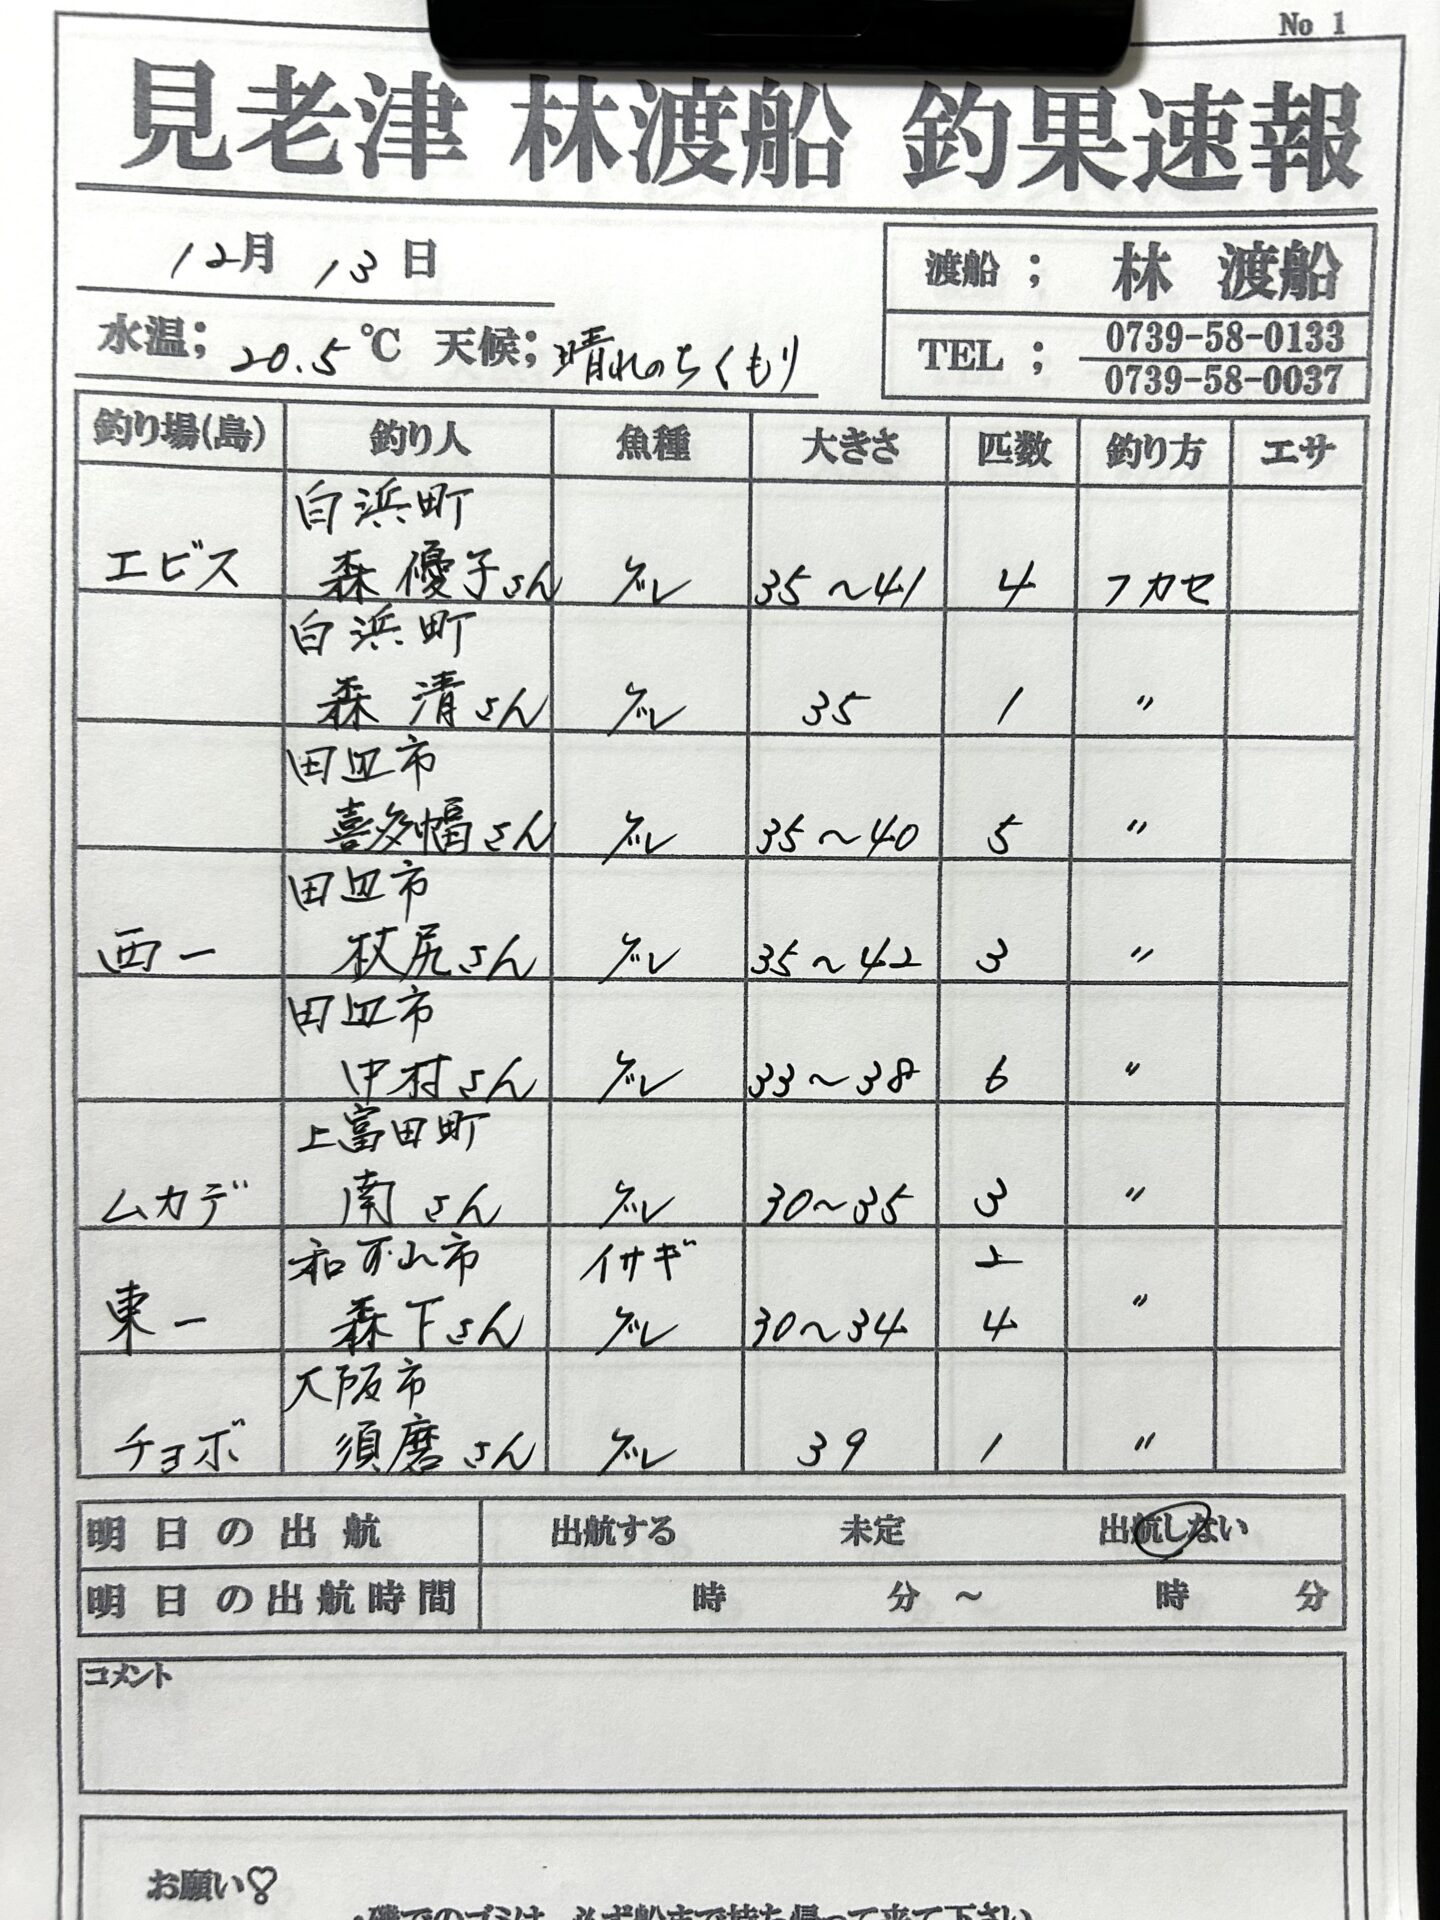 No 1
見老津 林渡船 釣果速報
12月 13日
渡船 ; 林 渡船
水温; 20.5 ℃ 天候; 晴れのちくもり
TEL ; 0739-58-0133
0739-58-0037
釣り場(島) 釣り人 魚種 大きさ 匹数 釣り方 エサ
白浜町
エビス 森 優子さん グレ 35～41 4 フカセ
白浜町
森 清さん グレ 35 1 〃
田辺市
喜多幅さん グレ 35～40 5 〃
田辺市
西一 枝尻さん グレ 35～42 3 〃
田辺市
中村さん グレ 33～38 6 〃
上富田町
ムカデ 南さん グレ 30～35 3 〃
和歌山市 イサギ 2
東一 森下さん グレ 30～34 4 〃
大阪市
チョボ 須磨さん グレ 39 1 〃
明日の出航 出航する 未定 出航しない
明日の出航時間 時 分 ～ 時 分
コメント
お願い♡
・磯でのゴミは、必ず船まで持ち帰って来て下さい